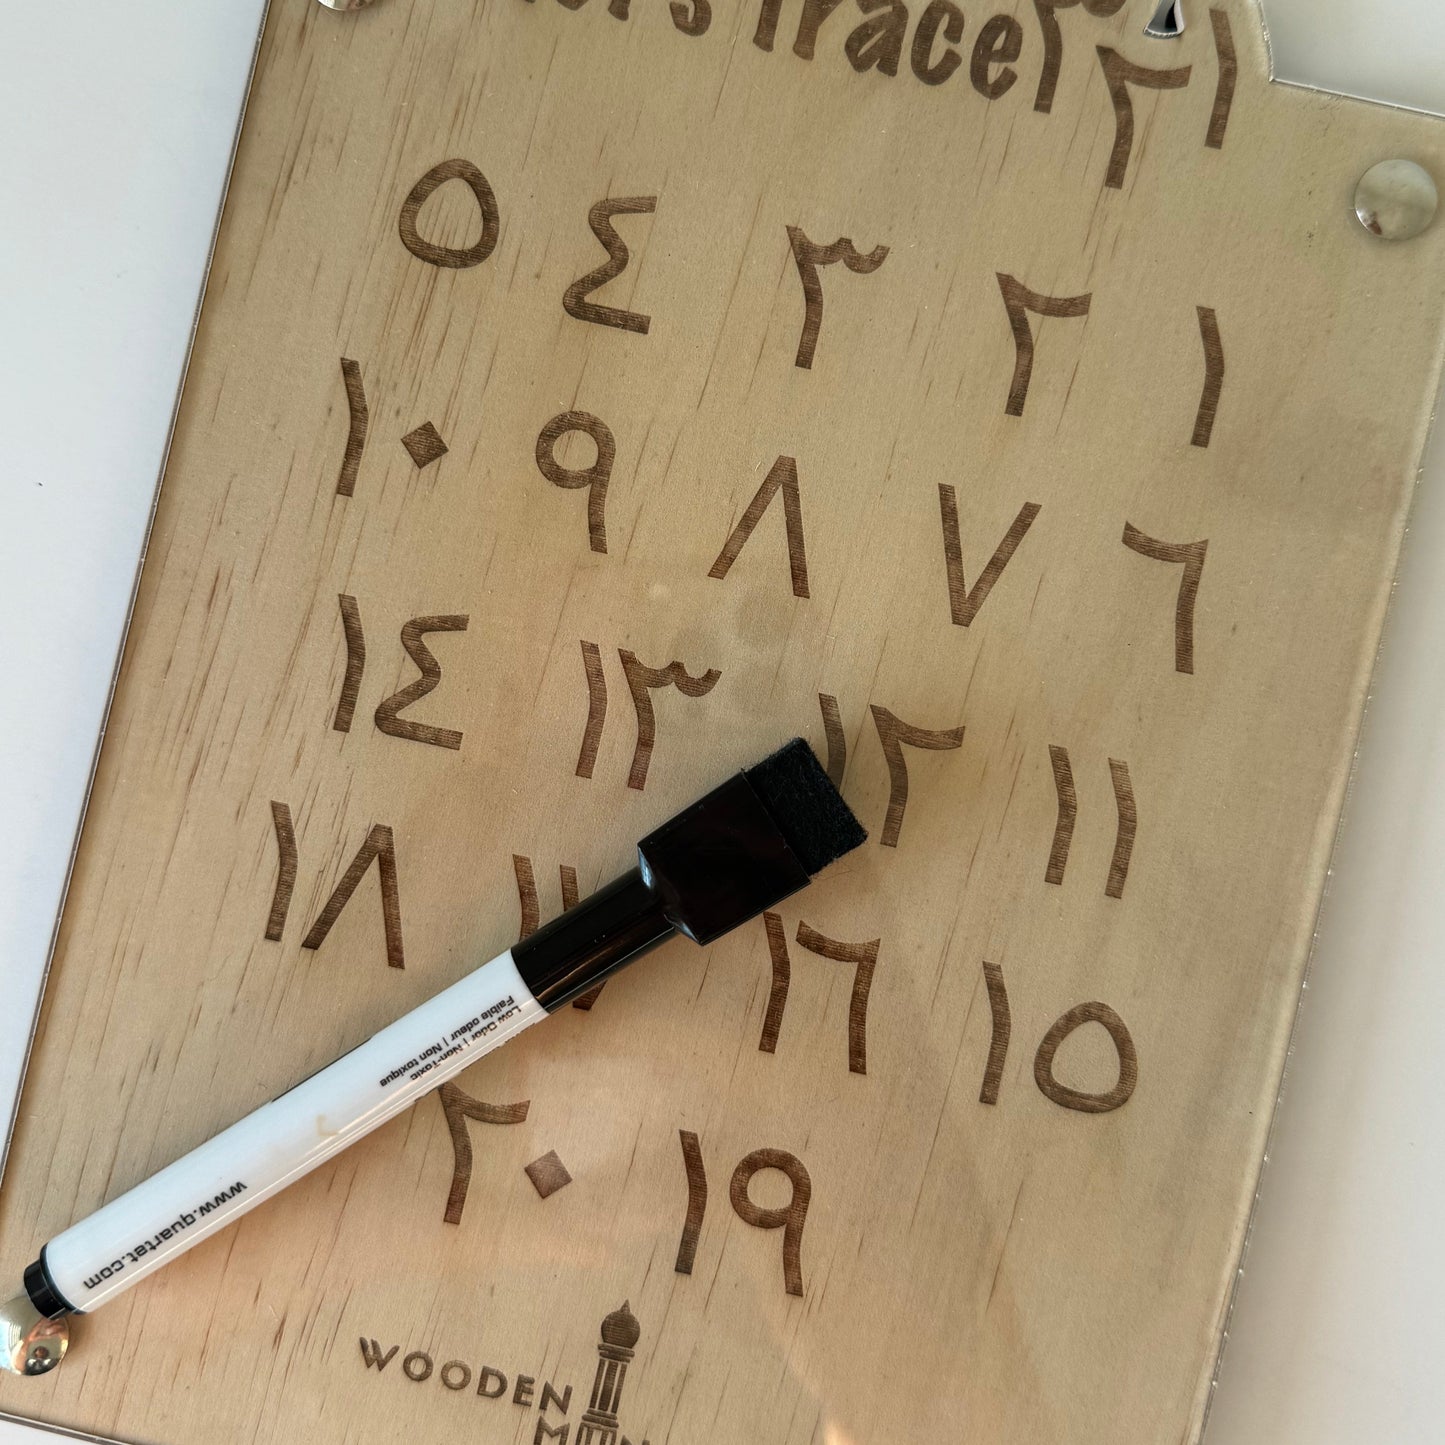 Trace
١ ٢ ٣
١ ٢ ٣ ٤ ٥
٦ ٧ ٨ ٩ ١٠
١١ ١٢ ١٣ ١٤
١٥ ١٦ ١٧ ١٨
١٩ ٢٠
Low Odor | Non-Toxic
Faible odeur | Non toxique
www.quartet.com
WOODEN